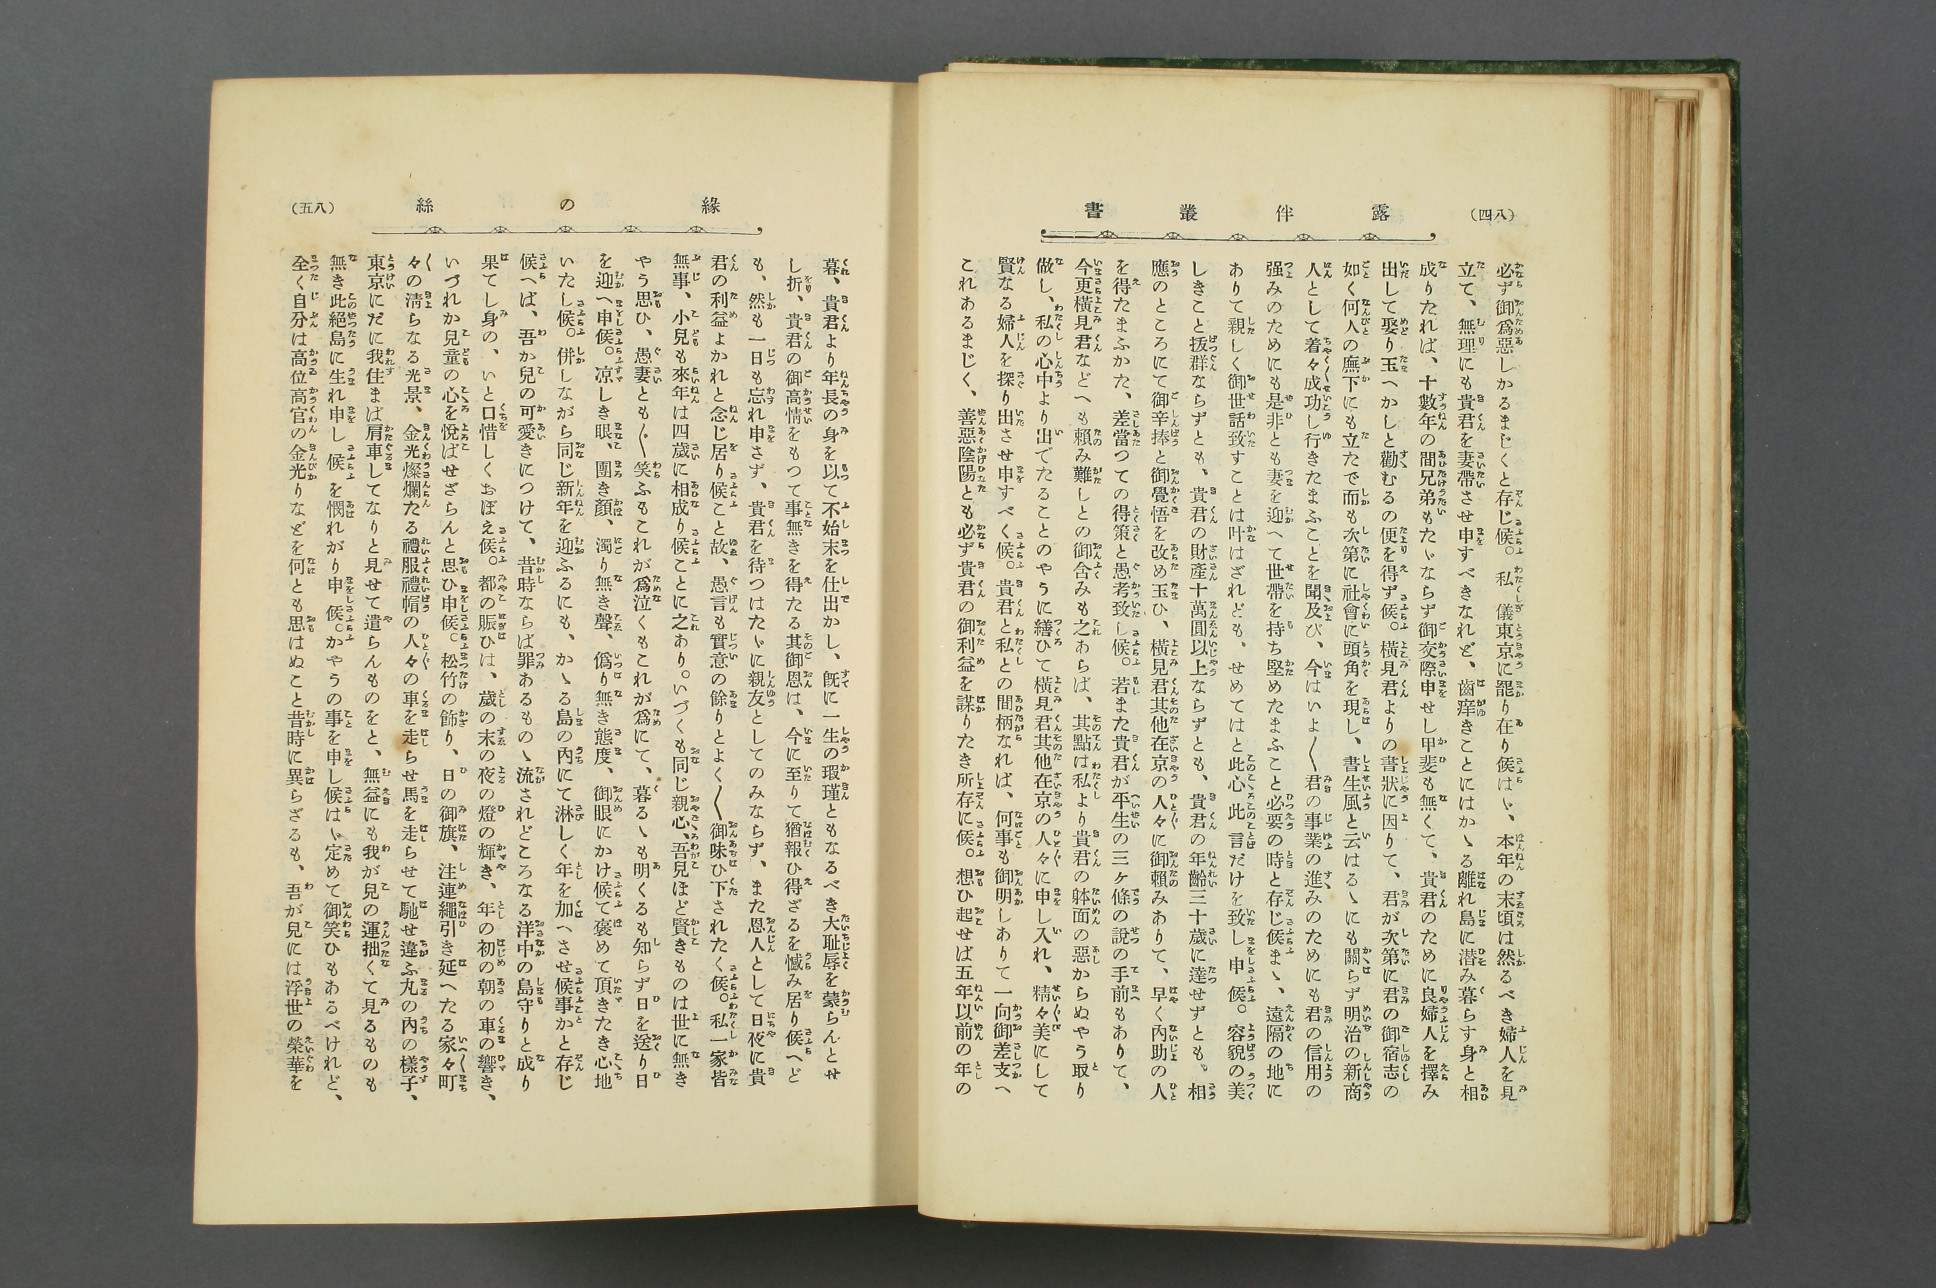 (八四)
露伴叢書
必ず御爲惡しかるまじくと存じ候。私儀東京に罷り在り候はゞ、本年の末頃は然るべき婦人を見
立て、無理にも貴君を妻帶させ申すべきなれど、齒痒きことにはかゝる離れ島に潜み暮らす身と相
成りたれば、十數年の間兄弟もたゞならず御交際申せし甲斐も無くて、貴君のために良婦人を擇み
出して娶り玉へかしと勸むるの便を得ず候。横見君よりの書狀に因りて、君が次第に君の御宿志の
如く何人の廡下にも立たで而も次第に社會に頭角を現し、書生風と云はるゝにも關らず明治の新商
人として着々成功し行きたまふことを聞及び、今はいよ〳〵君の事業の進みのためにも君の信用の
强みのためにも是非とも妻を迎へて世帶を持ち堅めたまふこと必要の時と存じ候まゝ、遠隔の地に
ありて親しく御世話致すことは叶はざれども、せめてはと此心此言だけを致し申候。容貌の美
しきこと拔群ならずとも、貴君の財產十萬圓以上ならずとも、貴君の年齡三十歲に達せずとも。相
應のところにて御辛捧と御覺悟を改め玉ひ、横見君其他在京の人々に御賴みありて、早く內助の人
を得たまふかた、差當つての得策と愚考致し候。若また貴君が平生の三ヶ條の說の手前もありて、
今更横見君などへも賴み難しとの御含みも之あらば、其點は私より貴君の躰面の惡からぬやう取り
做し、私の心中より出でたることのやうに繕ひて横見君其他在京の人々に申し入れ、精々美にして
賢なる婦人を探り出させ申すべく候。貴君と私との間柄なれば、何事も御明しありて一向御差支へ
これあるまじく、善惡陰陽とも必ず貴君の御利益を謀りたき所存に候。想ひ起せば五年以前の年の
緣の絲
(八五)
暮、貴君より年長の身を以て不始末を仕出かし、既に一生の瑕瑾ともなるべき大耻辱を蒙らんとせ
し折、貴君の御高情をもつて事無きを得たる其御恩は、今に至りて猶報ひ得ざるを憾み居り候へど
も、然も一日も忘れ申さず、貴君を待つはたゞに親友としてのみならず、また恩人として日夜に貴
君の利益よかれと念じ居り候こと故、愚言も實意の餘りとよく〳〵御味ひ下されたく候。私一家皆
無事、小兒も來年は四歲に相成り候ことに之あり。いづくも同じ親心、吾兒ほど賢きものは世に無き
やう思ひ、愚妻とも〴〵笑ふもこれが爲泣くもこれが爲にて、暮るゝも明くるも知らず日を送り日
を迎へ申候。凉しき眼、團き顏、濁り無き聲、僞り無き態度、御眼にかけ候て褒めて頂きたき心地
いたし候。併しながら同じ新年を迎ふるにも、かゝる島の內にて淋しく年を加へさせ候事かと存じ
候へば、吾か兒の可愛きにつけて、昔時ならば罪あるものゝ流されどころなる洋中の島守りと成り
果てし身の、いと口惜しくおぼえ候。都の賑ひは、歲の末の夜の燈の輝き、年の初の朝の車の響き、
いづれか兒童の心を悅ばせざらんと思ひ申候。松竹の飾り、日の御旗、注連繩引き延へたる家々町
々の淸らなる光景、金光燦爛たる禮服禮帽の人々の車を走らせ馬を走らせて馳せ違ふ丸の內の樣子、
東京にだに我住まば肩車してなりと見せて遣らんものをと、無益にも我が兒の運拙くて見るものも
無き此絕島に生れ申し候を憫れがり申候。かやうの事を申し候はゞ定めて御笑ひもあるべけれど、
全く自分は高位高官の金光りなどを何とも思はぬこと昔時に異らざるも、吾が兒には浮世の榮華を